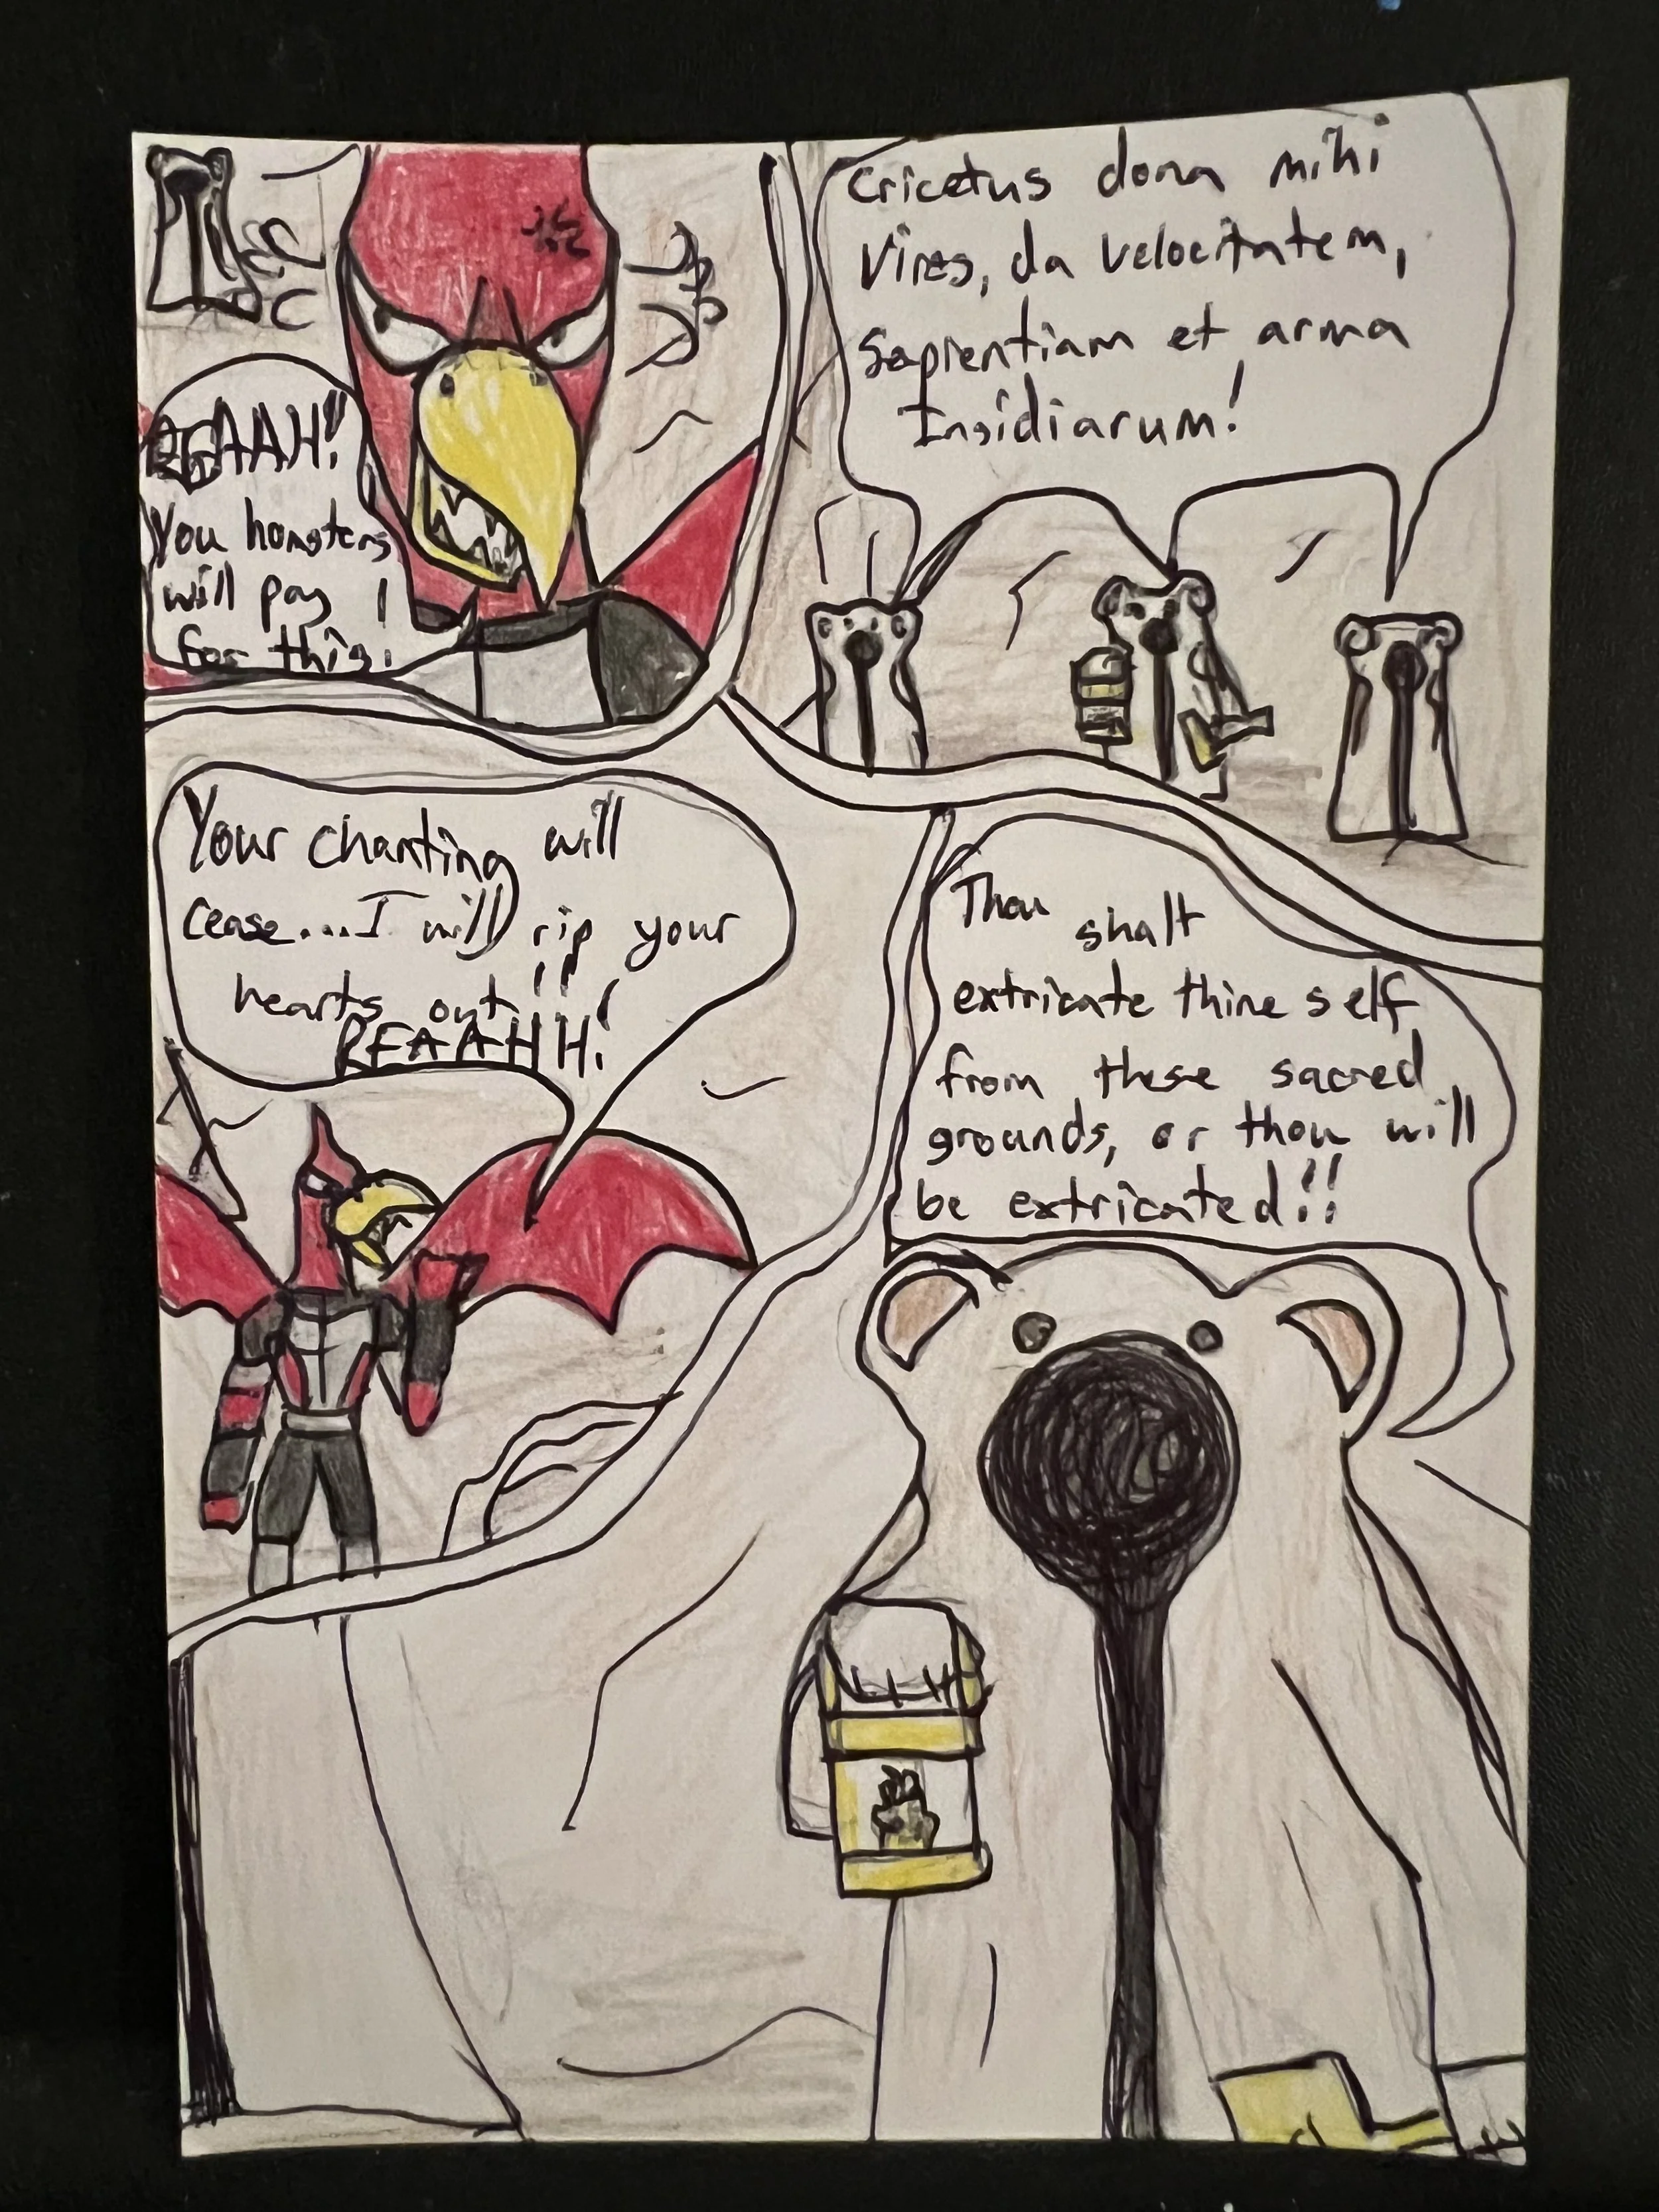 RGAAH!!
You hamsters
will pay
for this!
Cricetus dona mihi
Vires, da velocitatem,
Sapientiam et arma
Insidiarum!
Your chanting will
cease...I will rip your
hearts out!!
REAAHH!
Thou shalt
extricate thine self
from these sacred
grounds, or thou will
be extricated!!